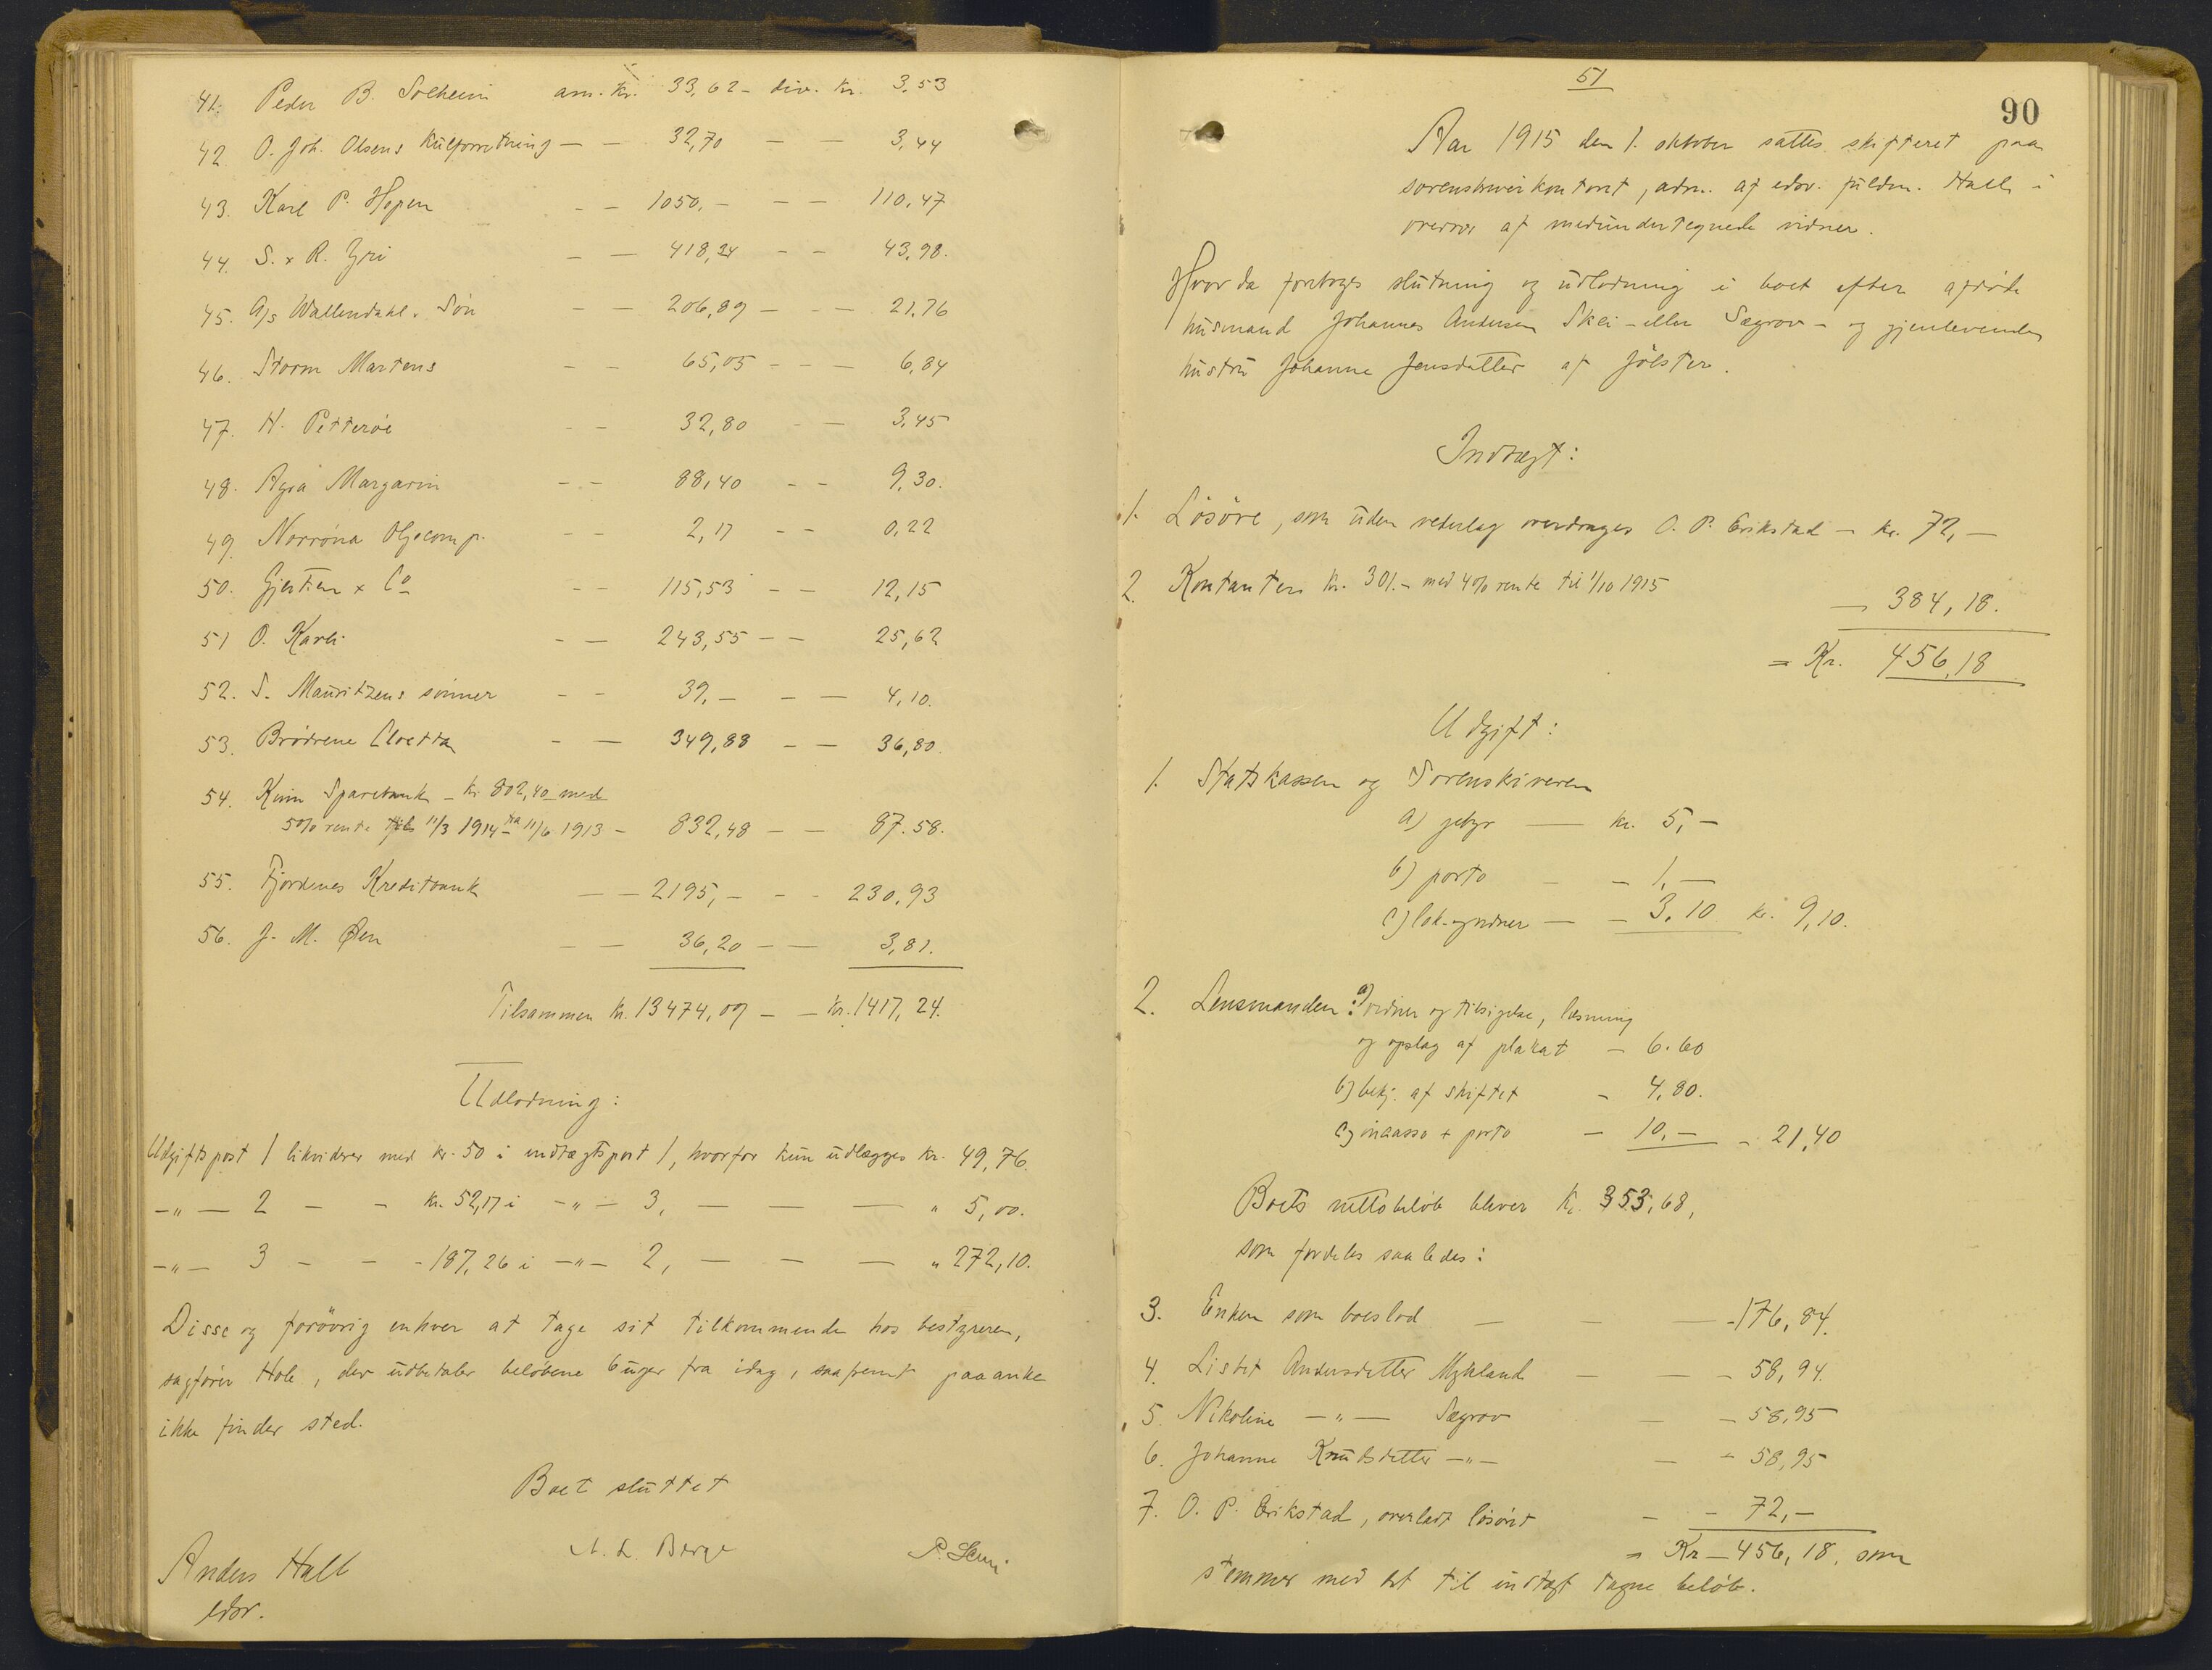 41. Peder B. Solheim anm. kr. 33,62 - div. kr. 3,53
42. O. Joh. Olsens kulforretning — — 32,70 — — 3,44
43. Karl P. Hopen — — 1050,- — — 110,47
44. S. x R. Yri — — 418,24 — — 43,98.
45. A/s Wallendahl & Søn — — 206,89 — — 21,76
46. Storm Martens — — 65,05 — — 6,84
47. H. Petterøe — — 32,80 — — 3,45
48. Agra Margarin — — 88,40 — — 9,30.
49. Norrøna Oljecomp. — — 2,17 — — 0,22
50. Gjertsen x Co — — 115,53 — — 12,15
51 O. Kavli — — 243,55 — — 25,62
52. S. Mauritzens sønner — — 39,- — — 4,10.
53. Brødrene Cloetta — — 349,88 — — 36,80.
54. Kinn Sparebank - kr 802,40 med
5% rente 11/3 1914 fra 11/6 1913 - 832,48 — — 87.58.
55. Fjordenes Kreditbank — — 2195,- — — 230,93
56. J. M. Øen — — 36,20 — — 3,81.
Tilsammen kr. 13474,09 — — kr. 1417,24.
Udlodning:
Udgiftspost 1 likviderer med kr. 50 i indtægtspost 1, hvorfor kun udlægges kr. 49,76.
-"- 2 - - kr. 52,17 i -"- 3, — — — " 5,00.
-"- 3 - - - 187,26 i -"- 2, — — — " 272,10.
Disse og forøvrig enhver at tage sit tilkommende hos bestyreren,
sagfører Hole, der udbetaler beløbene 6 uger fra idag, saafremt paaanke
ikke finder sted.
Boet sluttet
Anders Hall
edsv.
N. L. Berge
P.
51
90
Aar 1915 den 1. oktober sattes skifteret paa
sorenskriverkontoret, adm. af edsv. fuldm. Hall, i
overvær af medundertegnede vidner.
Hvor da foretoges slutning og udlodning i boet efter afdøde
husmand Johannes Andersen Skei - eller Sægrov - og gjenlevende
hustru Johanne Jensdatter af Jølster.
Indtægt:
1. Løsøre, som uden vederlag overdrages O. P. Erikstad - kr. 72,-
2. Kontanter kr. 301.- med 4% rente til 1/10 1915
— 384,18.
= Kr. 456,18
Udgift:
1. Statskassen og Sorenskriveren
a) gebyr — kr. 5,-
b) porto - - 1,-
c) lok. og vidner — - 3,10 kr. 9,10.
2. Lensmanden: a) vidner og tilsigelse, læsning
og opslag af plakat - 6.60
b) bekj. af skiftet - 4,80.
c) incasso + porto - 10,- - 21,40
Boets nettobeløb bliver kr. 353,68,
som fordeles saaledes:
3. Enken som boeslod — - — - 176,84.
4. Lisbet Andersdatter Mykland — — - 58,94.
5. Nikoline -"- Sægrov — - 58,95
6. Johanne Knutsdatter -"- — - 58,95
7. O. P. Erikstad, overladt løsøret - - 72,-
= Kr - 456,18, som
stemmer med det til indtægt tagne beløb.